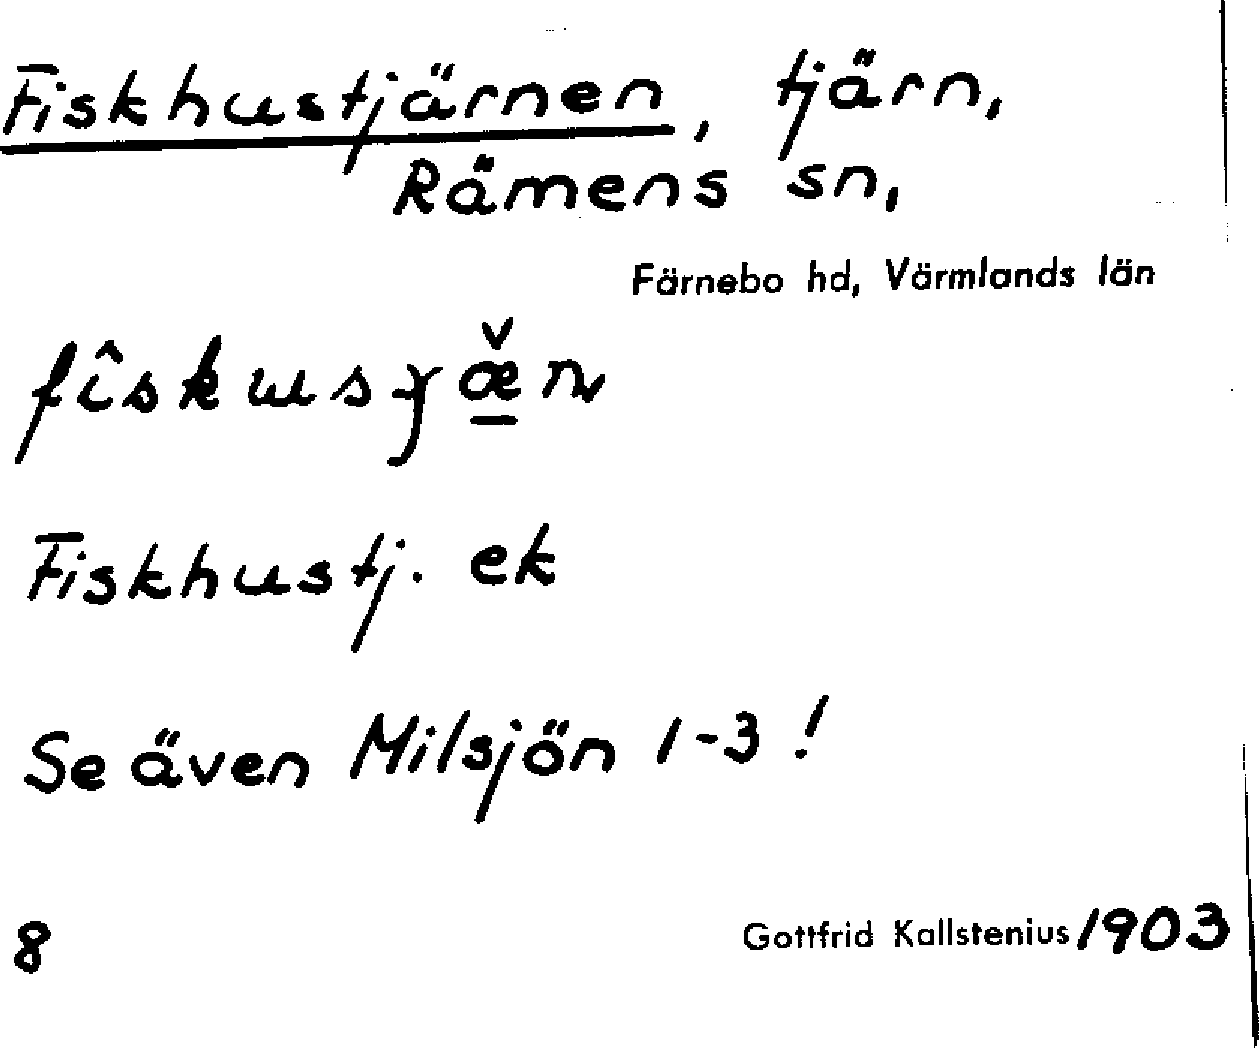 Fiskhustjärnen, tjärn,
Rämens sn,
Färnebo hd, Värmlands län
Fiskhustj. ek
Se även Milsjön 1-3!
8 Gottfrid Kallstenius 1903